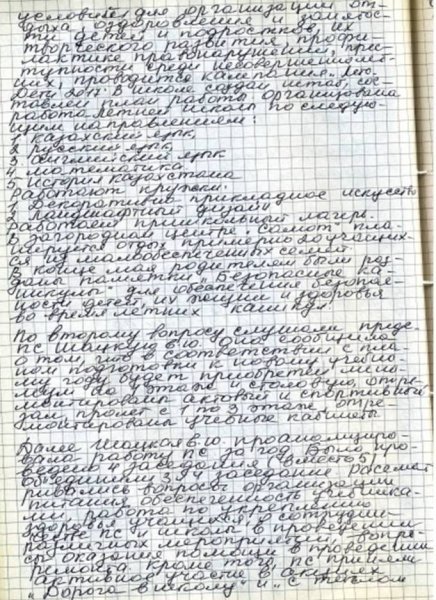 условий для организации от-
дыха, оздоровления и занятос-
ти детей и подростков, их
творческого развития, профи-
лактике правонарушений, прес-
тупности среди несовершеннолет-
них, проводится кампания „Лето
Дети 2017. В школе создан штаб, сос-
тавлен план работы. Организована
работа летней школы по следую-
щим направлениям:
1 казахский язык
2 русский язык
3 английский язык
4 математика
5 История Казахстана
Работают кружки:
1 Декоративно прикладное искусство
2 Ландшафтный дизайн
Работает пришкольный лагерь.
В загородном центре пла-
нируется отдых примерно 20 учащих-
ся из малообеспеченных семей.
В конце мая родителям были роз-
даны памятки „Безопасные ка-
никулы" для обеспечения безопас-
ности детей, их жизни и здоровья
во время летних каникул.
По второму вопросу слушали предс.
ПС В.Ю. Она сообщила
о том, что в соответствии с пла-
ном подготовки к новому учебно-
му году будет приобретен лино-
леум на этажи и столовую, отре-
монтирован актовый и спортивный
зал, пролет с 1 по 3 этаж, отре-
монтированы учебные кабинеты.
Далее В.Ю. проанализиро-
вала работу ПС за год. Было про-
ведено 4 заседания (вместо 5,
объединили 3 и 4 заседание). Рассмат
ривались вопросы организации
питания, обеспеченность учебника-
ми, работа по укреплению
здоровья учащихся, сотрудни-
чество ПС и школы в проведении
различных мероприятий, вопро-
сы оказания помощи в проведении
ремонта. Кроме того, ПС приняли
активное участие в акциях
„Дорога в школу" и „С теплом